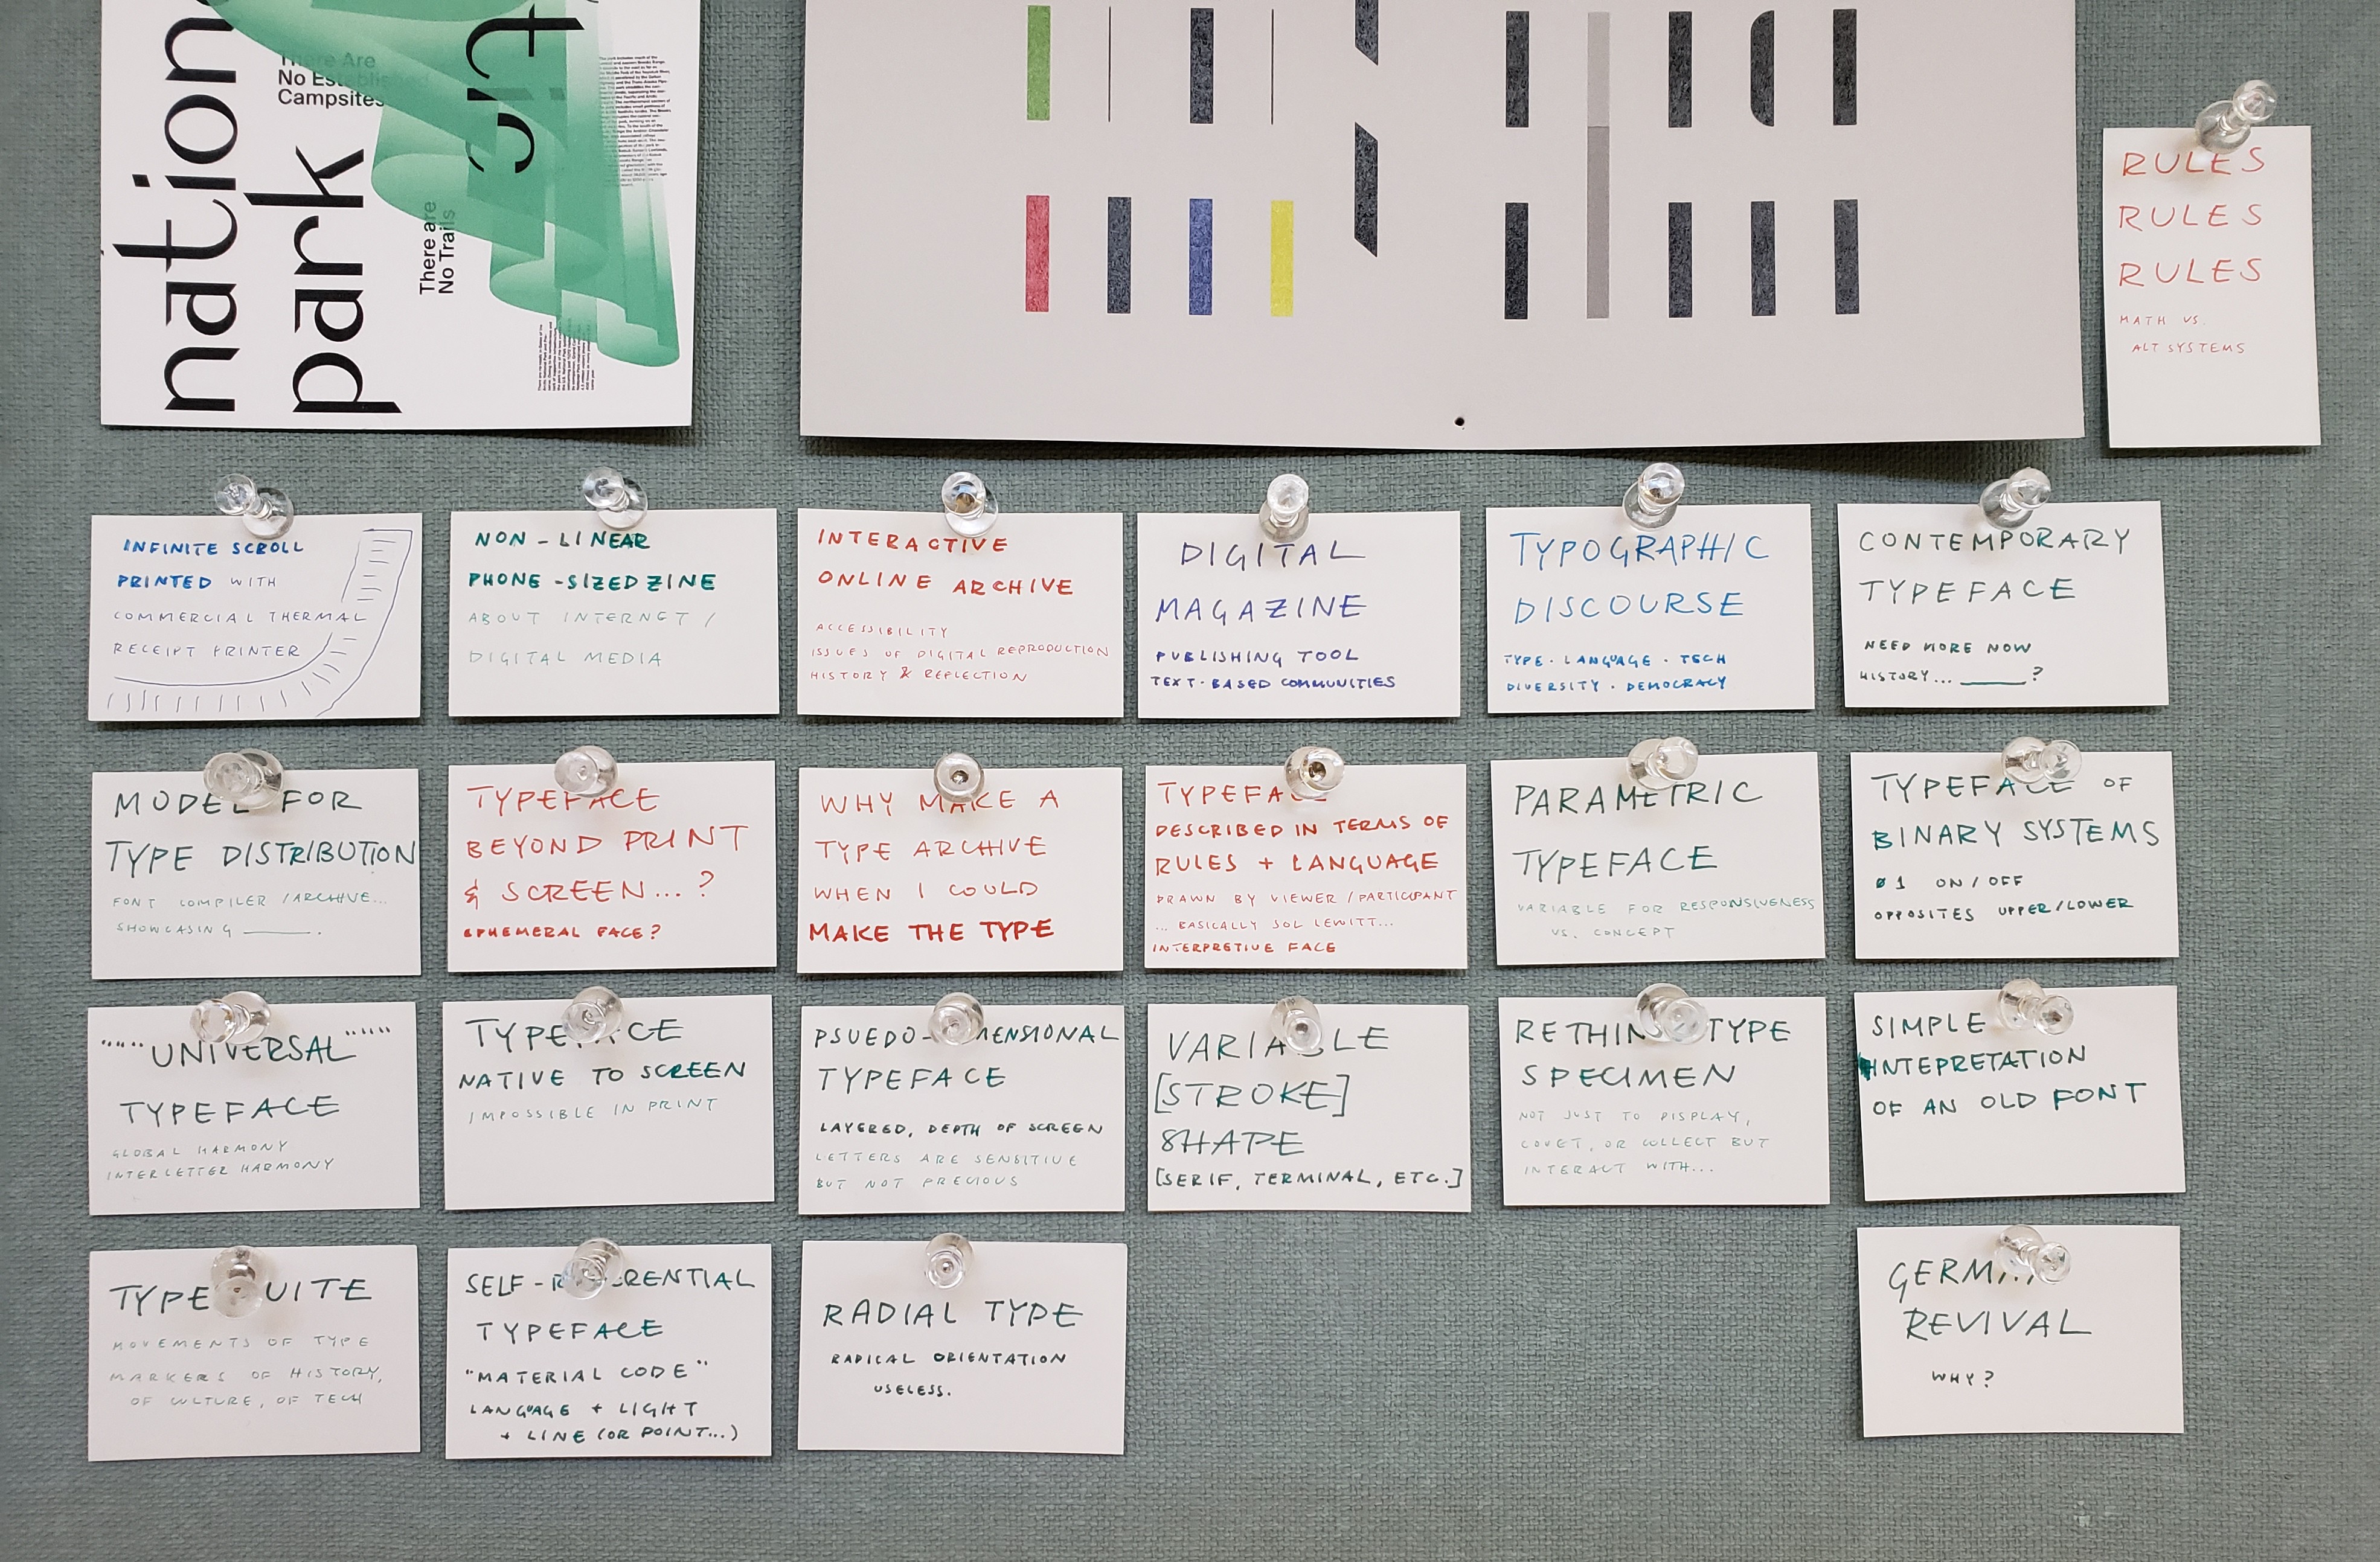 national
park
There Are
No Established
Campsites
There are
No Trails
RULES
RULES
RULES
MATH VS.
ALT SYSTEMS
INFINITE SCROLL
PRINTED WITH
COMMERCIAL THERMAL
RECEIPT PRINTER
NON-LINEAR
PHONE-SIZED ZINE
ABOUT INTERNET /
DIGITAL MEDIA
INTERACTIVE
ONLINE ARCHIVE
ACCESSIBILITY
ISSUES OF DIGITAL REPRODUCTION
HISTORY & REFLECTION
DIGITAL
MAGAZINE
PUBLISHING TOOL
TEXT-BASED COMMUNITIES
TYPOGRAPHIC
DISCOURSE
TYPE · LANGUAGE · TECH
DIVERSITY · DEMOCRACY
CONTEMPORARY
TYPEFACE
NEED MORE NOW
HISTORY... ______?
MODEL FOR
TYPE DISTRIBUTION
FONT COMPILER / ARCHIVE...
SHOWCASING ______.
TYPEFACE
BEYOND PRINT
& SCREEN...?
EPHEMERAL FACE?
WHY MAKE A
TYPE ARCHIVE
WHEN I COULD
MAKE THE TYPE
TYPEFACE
DESCRIBED IN TERMS OF
RULES + LANGUAGE
DRAWN BY VIEWER / PARTICIPANT
... BASICALLY SOL LEWITT...
INTERPRETIVE FACE
PARAMETRIC
TYPEFACE
VARIABLE FOR RESPONSIVENESS
VS. CONCEPT
TYPEFACE OF
BINARY SYSTEMS
0 1 ON / OFF
OPPOSITES UPPER / LOWER
"""""UNIVERSAL"""""
TYPEFACE
GLOBAL HARMONY
INTERLETTER HARMONY
TYPEFACE
NATIVE TO SCREEN
IMPOSSIBLE IN PRINT
PSUEDO-DIMENSIONAL
TYPEFACE
LAYERED, DEPTH OF SCREEN
LETTERS ARE SENSITIVE
BUT NOT PRECIOUS
VARIABLE
[STROKE]
SHAPE
[SERIF, TERMINAL, ETC.]
RETHINK TYPE
SPECIMEN
NOT JUST TO DISPLAY,
COVET, OR COLLECT BUT
INTERACT WITH...
SIMPLE
INTEPRETATION
OF AN OLD FONT
TYPE SUITE
MOVEMENTS OF TYPE
MARKERS OF HISTORY,
OF CULTURE, OF TECH
SELF-REFERENTIAL
TYPEFACE
"MATERIAL CODE"
LANGUAGE + LIGHT
+ LINE (OR POINT...)
RADIAL TYPE
RADICAL ORIENTATION
USELESS.
GERMAN
REVIVAL
WHY?